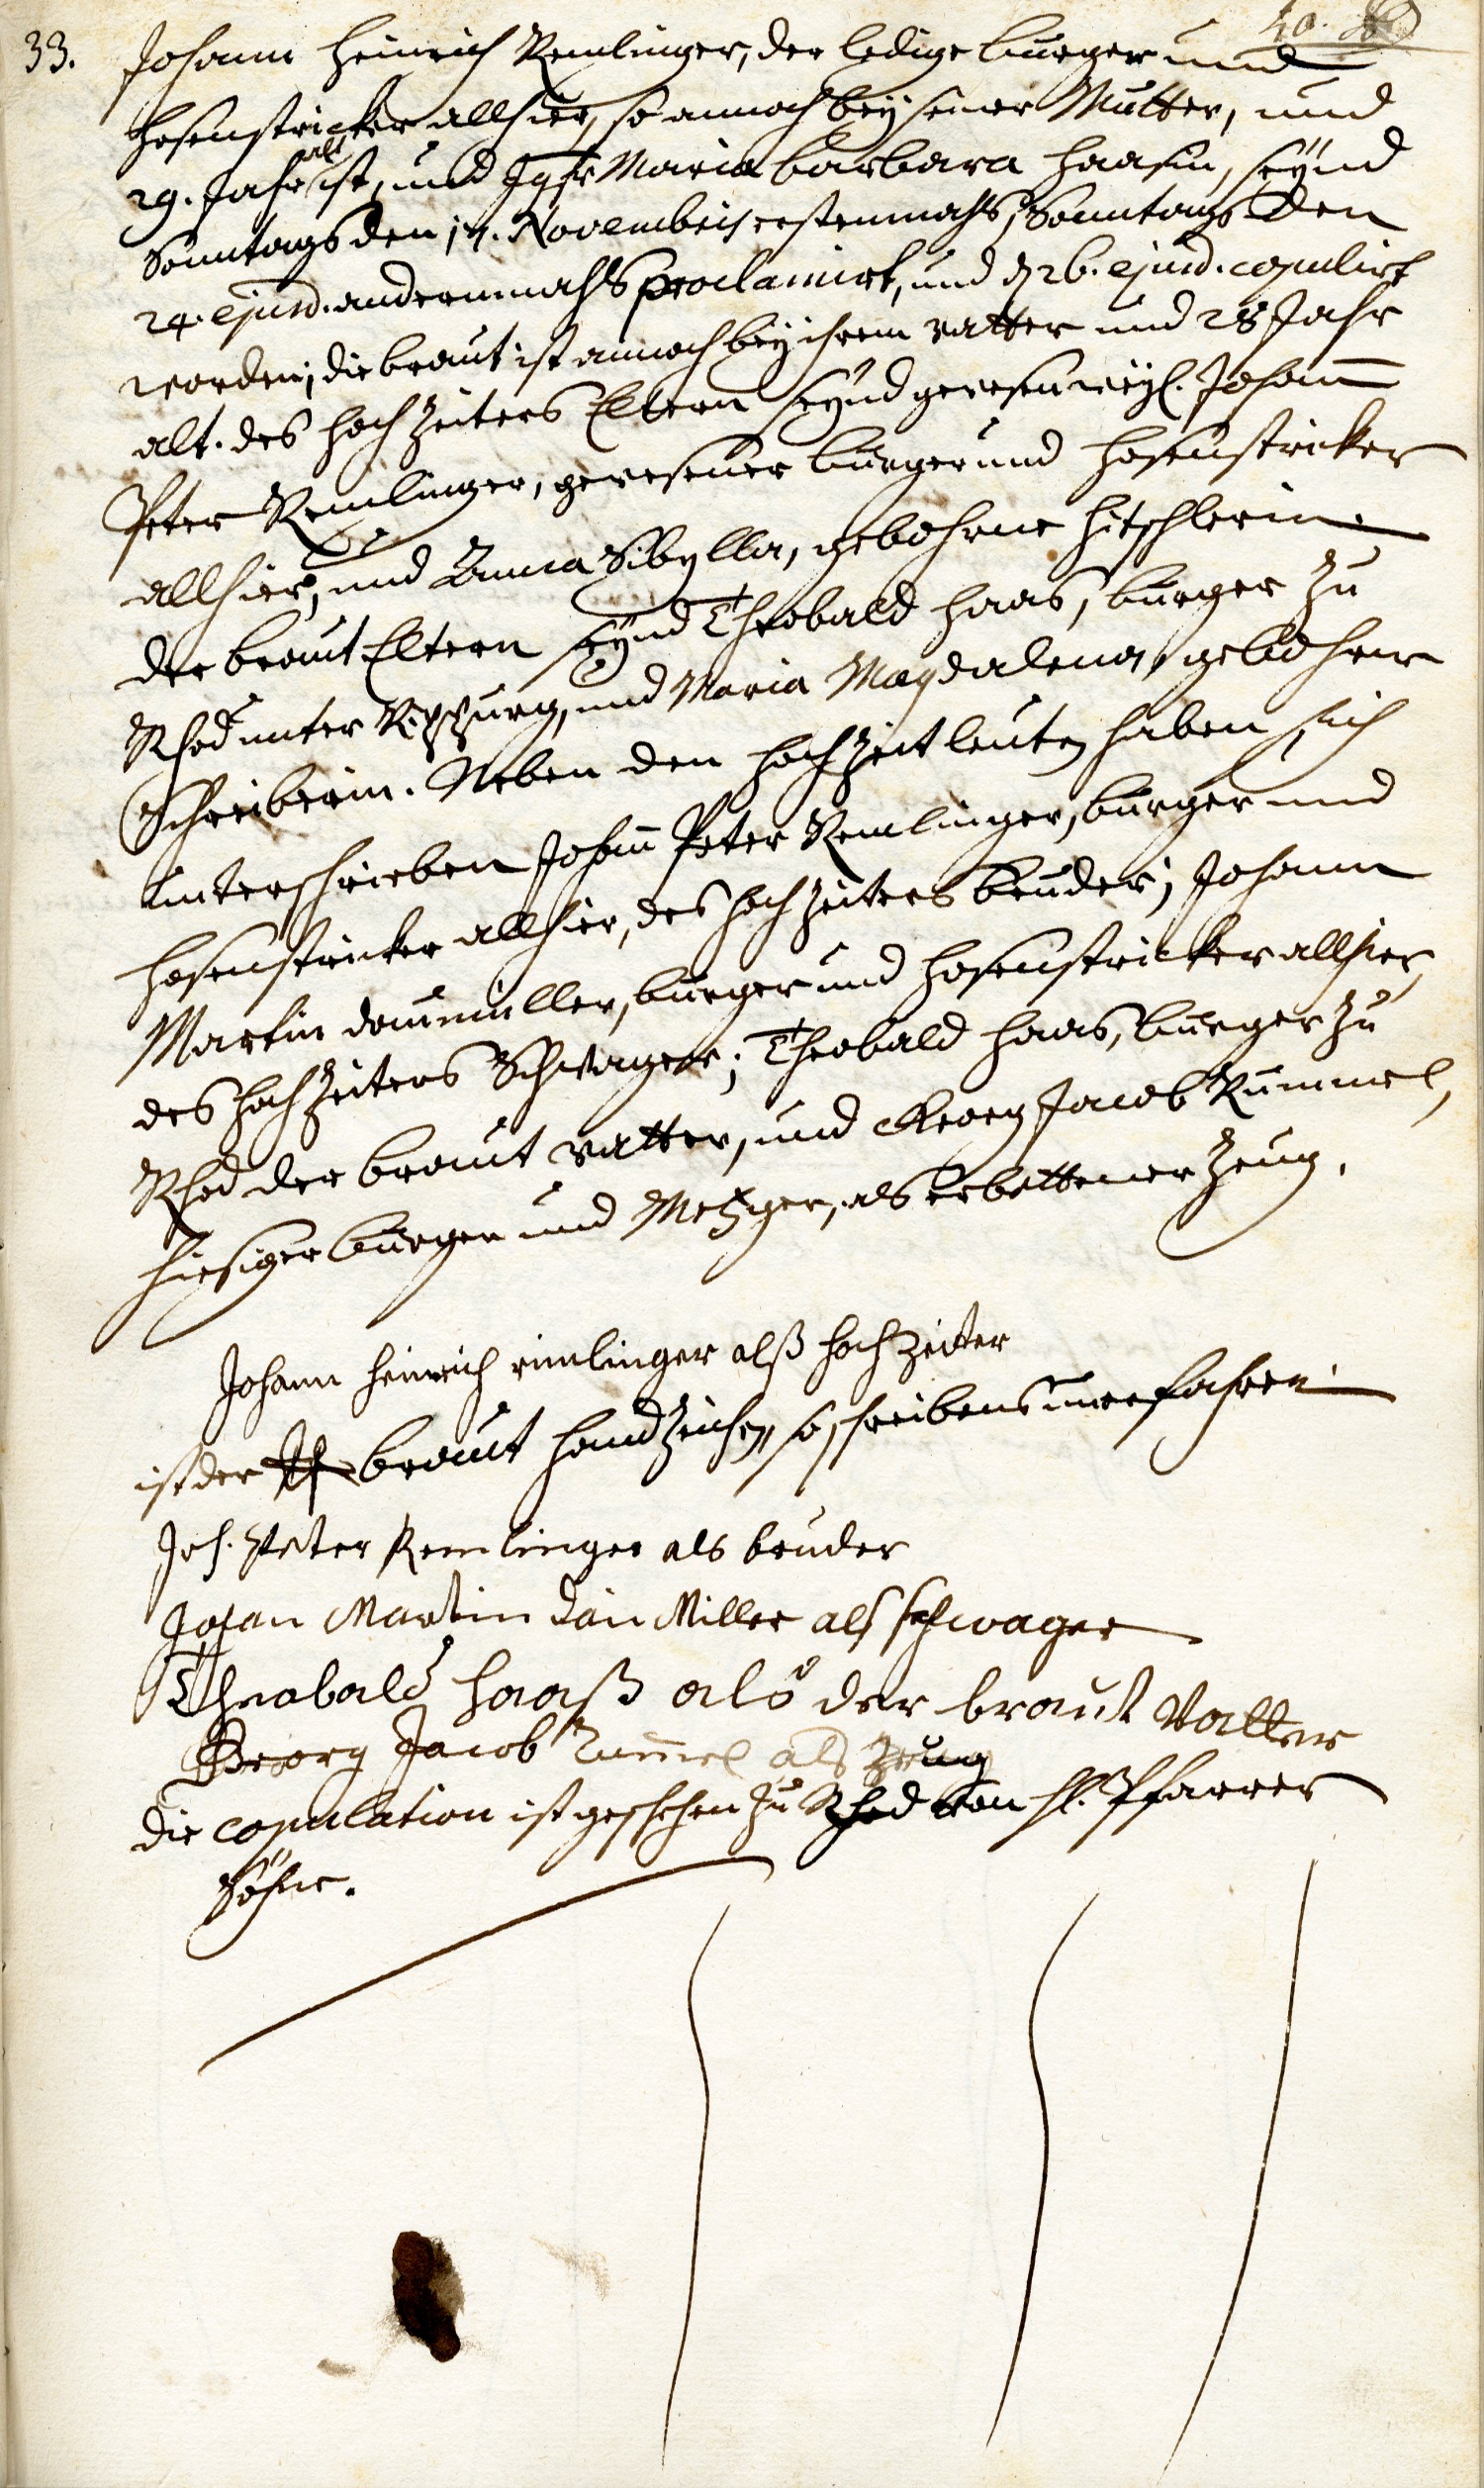 40.
33. Johann Heinrich Remlinger, der ledige burger und
hosenstricker allhier, so annoch bey seiner Mutter, und
29. Jahr alt ist, und Jgfr Maria barbara Haasin, seynd
Sonntags den 17. Novembris erstenmahls, Sonntags den
24. ejusd. andernmahls proclamirt, und d 26. ejusd. copulirt
worden; die braut ist annoch bey ihrem vatter und 28 Jahr
alt. des hochzeiters Eltern seynd gewesen weyl. Johann
Peter Remlinger, gewesener burger und hosenstricker
allhier, und Anna Sibylla, gebohrne Hitschlerin.
der braut Eltern seynd Theobald Haas, burger zu
Rhod unter Rippurg, und Maria Magdalena, gebohrne
Schreiberin. Neben den hochzeitleuten haben sich
unterschrieben Johann Peter Remlinger, burger und
hosenstricker allhier, des hochzeiters bruder; Johann
Martin daumüller, burger und hosenstricker allhier,
des hochzeiters Schwager; Theobald Haas, burger zu
Rhod der braut vatter, und Georg Jacob Kummel,
hiesiger burger und Metzger, als erbettener Zeug.
Johann Heinrich rimlinger alß hochzeiter
ist der braut handzeichen, so schreibens unerfahren
Joh. Peter Remlinger als bruder
Johan Martin dau Miller als schwager
Theabald Haaß als der braut Vatter
Georg Jacob Kummel als Zeug
die copulation ist geschehen zu Rhod von H. Pfarrer
Söhne.